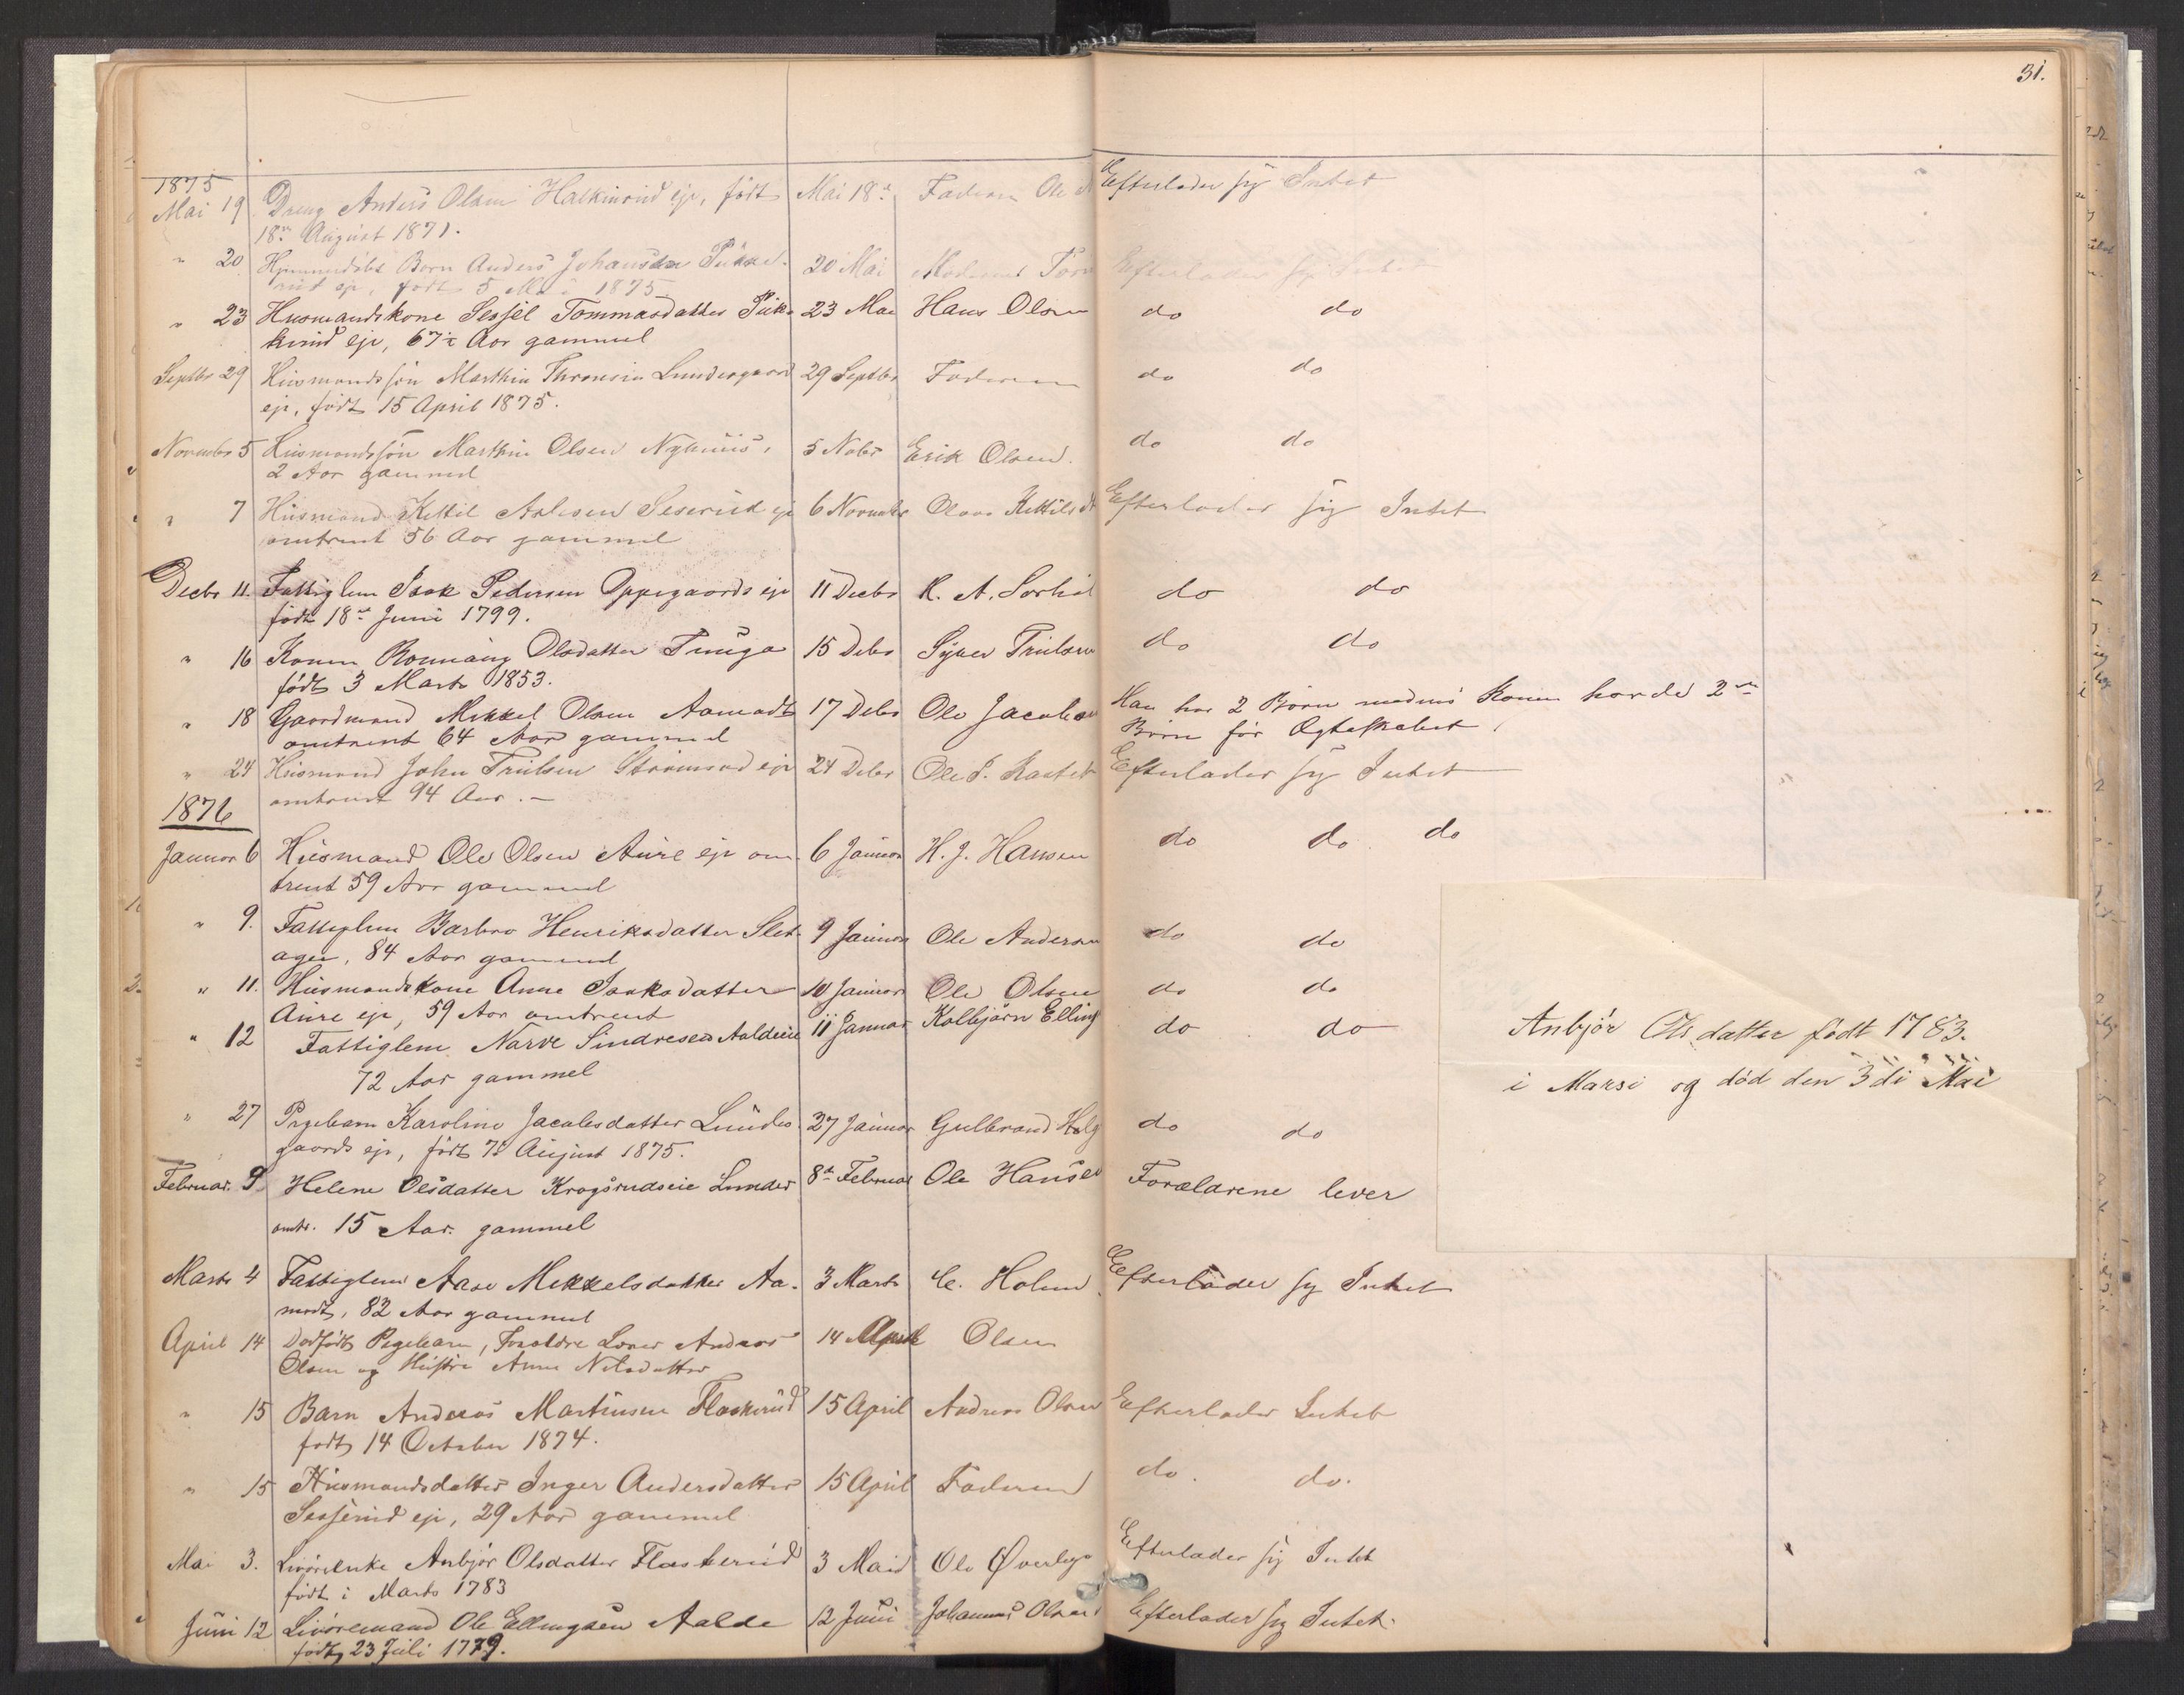 31.
1875
Mai 19 Dreng Anders Olsen Halkinrud eje, født Mai 18de Faderen Ole Efterlader sig Intet
18de August 1871.
" 20 Barn Anders Johansen 20 Mai Moderen Efterlader sig Intet
rud eje, født 5 Mai 1875
" 23 Husmandskone Sessel Tommasdatter Pük- 23 Mai Hans Olsen do do
kerud eje, 67½ Aar gammel
Septbr 29 Husmandssøn Marthin Thronsen Lundesgaard 29 Septbr Faderen do do
eje, født 15 April 1875.
November 5 Husmandssøn Marthin Olsen Nyhuus, 5 Nobr Erik Olsen. do do
2 Aar gammel
" 7 Husmand Kittil Aslesen Seserud eje 6 November Olava Kittilsdt Efterlader sig Intet
omtrent 56 Aar gammel
Decbr 11. Fattiglem Isak Pedersen Oppegaards eje 11 Decbr K. A. do do
født 18de Juni 1799.
" 16 Konen Rønnaug Olsdatter Tunga 15 Debr Syver Trulsen do do
født 3 Marts 1853.
" 18 Gaardmand Mikkel Olsen Aamodt 17 Debr Ole Jacobsen Han har 2 Børn medens Konen havde 2de
omtrent 64 Aar gammel Børn før Ægteskabet
" 24 Husmand John Trulsen eje 24 Debr Ole P. Efterlader sig Intet
omtrent 94 Aar. —
1876
Januar 6 Husmand Ole Olsen Aure eje om- 6 Januar H. J. Hansen do do do
trent 59 Aar gammel
" 9. Fattiglem Barbro Henriksdatter Slet- 9 Januar Ole Andersen do do
agen, 84 Aar gammel
" 11. Husmandskone Anne Isaksdatter 10 Januar Ole Olsen do do
Aure eje, 59 Aar omtrent
" 12 Fattiglem Narve Sindresen Aaldeeie 11 Januar Kolbjørn Elling do do
72 Aar gammel
" 27 Pigebarn Karoline Jacobsdatter Lundes- 27 Januar Gulbrand Helg do do
gaards eje, født 7de August 1875.
Februar. 9. Helene Olsdatter Krogsrudseie Lunder 8de Februar Ole Hansen Forældrene lever
omtr. 15 Aar. gammel
Marts 4 Fattiglem Aase Mikkelsdatter Aa- 3 Marts C. Holm Efterlader sig Intet
modt, 82 Aar gammel
April 14 Dødfødt Pigebarn, Forældre Andreas 14 April Olsen
Olsen og Hustru Anne Nilsdatter
" 15 Barn Andreas Martinsen Flaskerud 15 April Andreas Olsen Efterlader Intet
født 14 October 1874.
" 15 Husmandsdatter Inger Andersdatter 15 April Faderen do. do.
Sesserud eje, 29 Aar gammel
Mai 3. Livørenke Anbjør Olsdatter Flaskerud 3 Mai Ole Efterlader sig Intet
født i Marts 1783
Juni 12 Livøremand Ole Ellingsen Aalde 12 Juni Johannes Olsen Efterlader sig Intet.
født 23 Juli 1779.
Anbjør Olsdatter født 1783.
i Marsi og død den 3di Mai